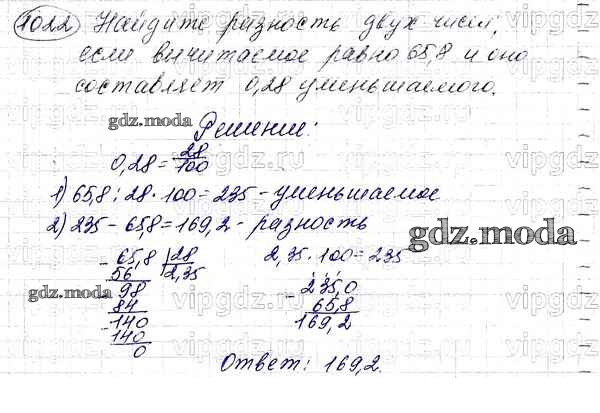 1022 Найдите разность двух чисел,
если вычитаемое равно 65,8 и оно
составляет 0,28 уменьшаемого.
gdz.moda
Решение:
0,28 = 28/100
1) 65,8 : 28 · 100 = 235 - уменьшаемое
2) 235 - 65,8 = 169,2 - разность
gdz.moda
- 65,8 | 28
56 2,35
- 98
84
- 140
140
0
gdz.moda
2,35 · 100 = 235
- 235,0
65,8
169,2
Ответ: 169,2.